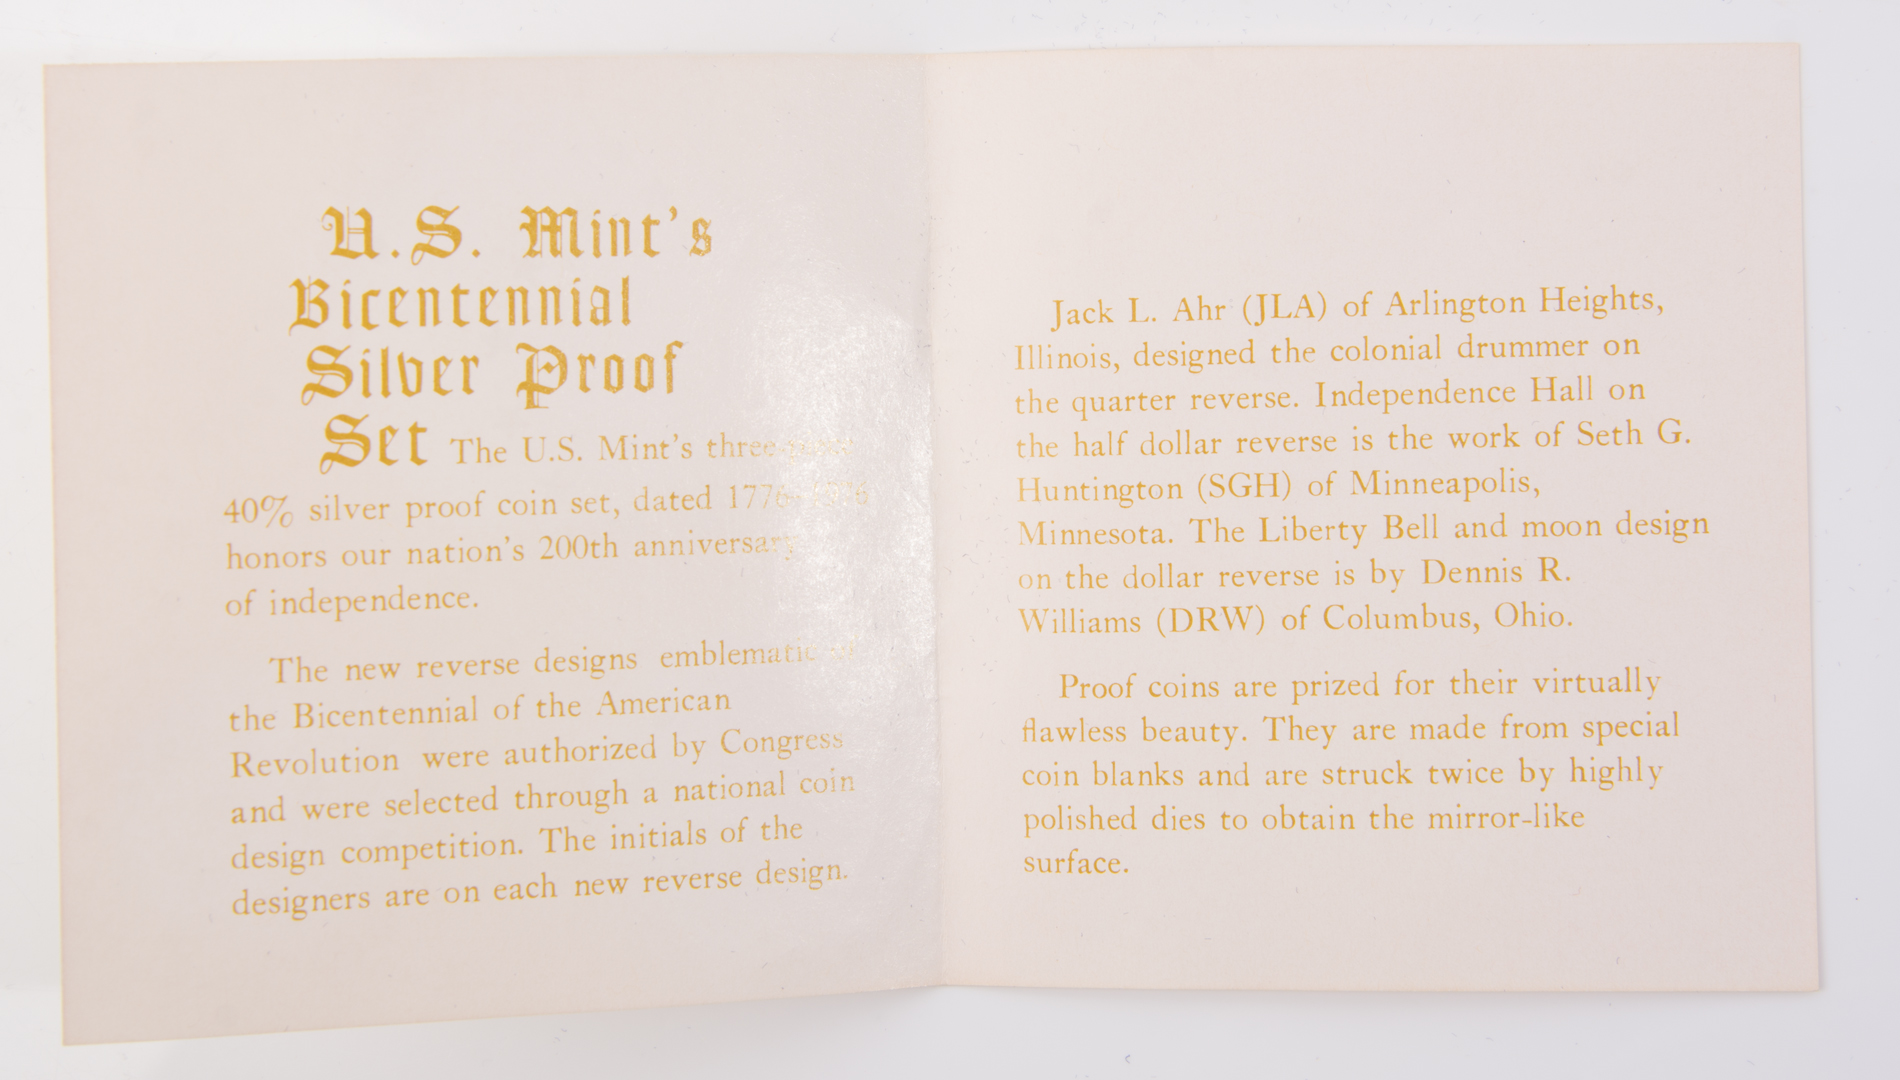 U.S. Mint's
Bicentennial
Silver Proof
Set The U.S. Mint's three-piece
40% silver proof coin set, dated 1776-1976
honors our nation's 200th anniversary
of independence.
The new reverse designs emblematic of
the Bicentennial of the American
Revolution were authorized by Congress
and were selected through a national coin
design competition. The initials of the
designers are on each new reverse design.
Jack L. Ahr (JLA) of Arlington Heights,
Illinois, designed the colonial drummer on
the quarter reverse. Independence Hall on
the half dollar reverse is the work of Seth G.
Huntington (SGH) of Minneapolis,
Minnesota. The Liberty Bell and moon design
on the dollar reverse is by Dennis R.
Williams (DRW) of Columbus, Ohio.
Proof coins are prized for their virtually
flawless beauty. They are made from special
coin blanks and are struck twice by highly
polished dies to obtain the mirror-like
surface.